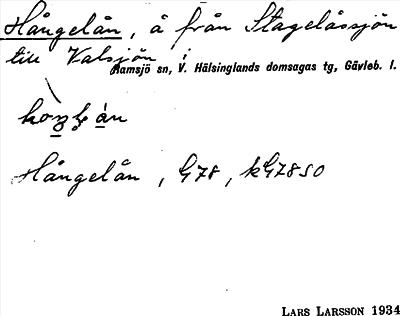 Hångelån, å från Stagelåssjön
till Valsjön i
Ramsjö sn, V. Hälsinglands domsagas tg, Gävleb. l.
Hångelån, G78, kG7850
LARS LARSSON 1934